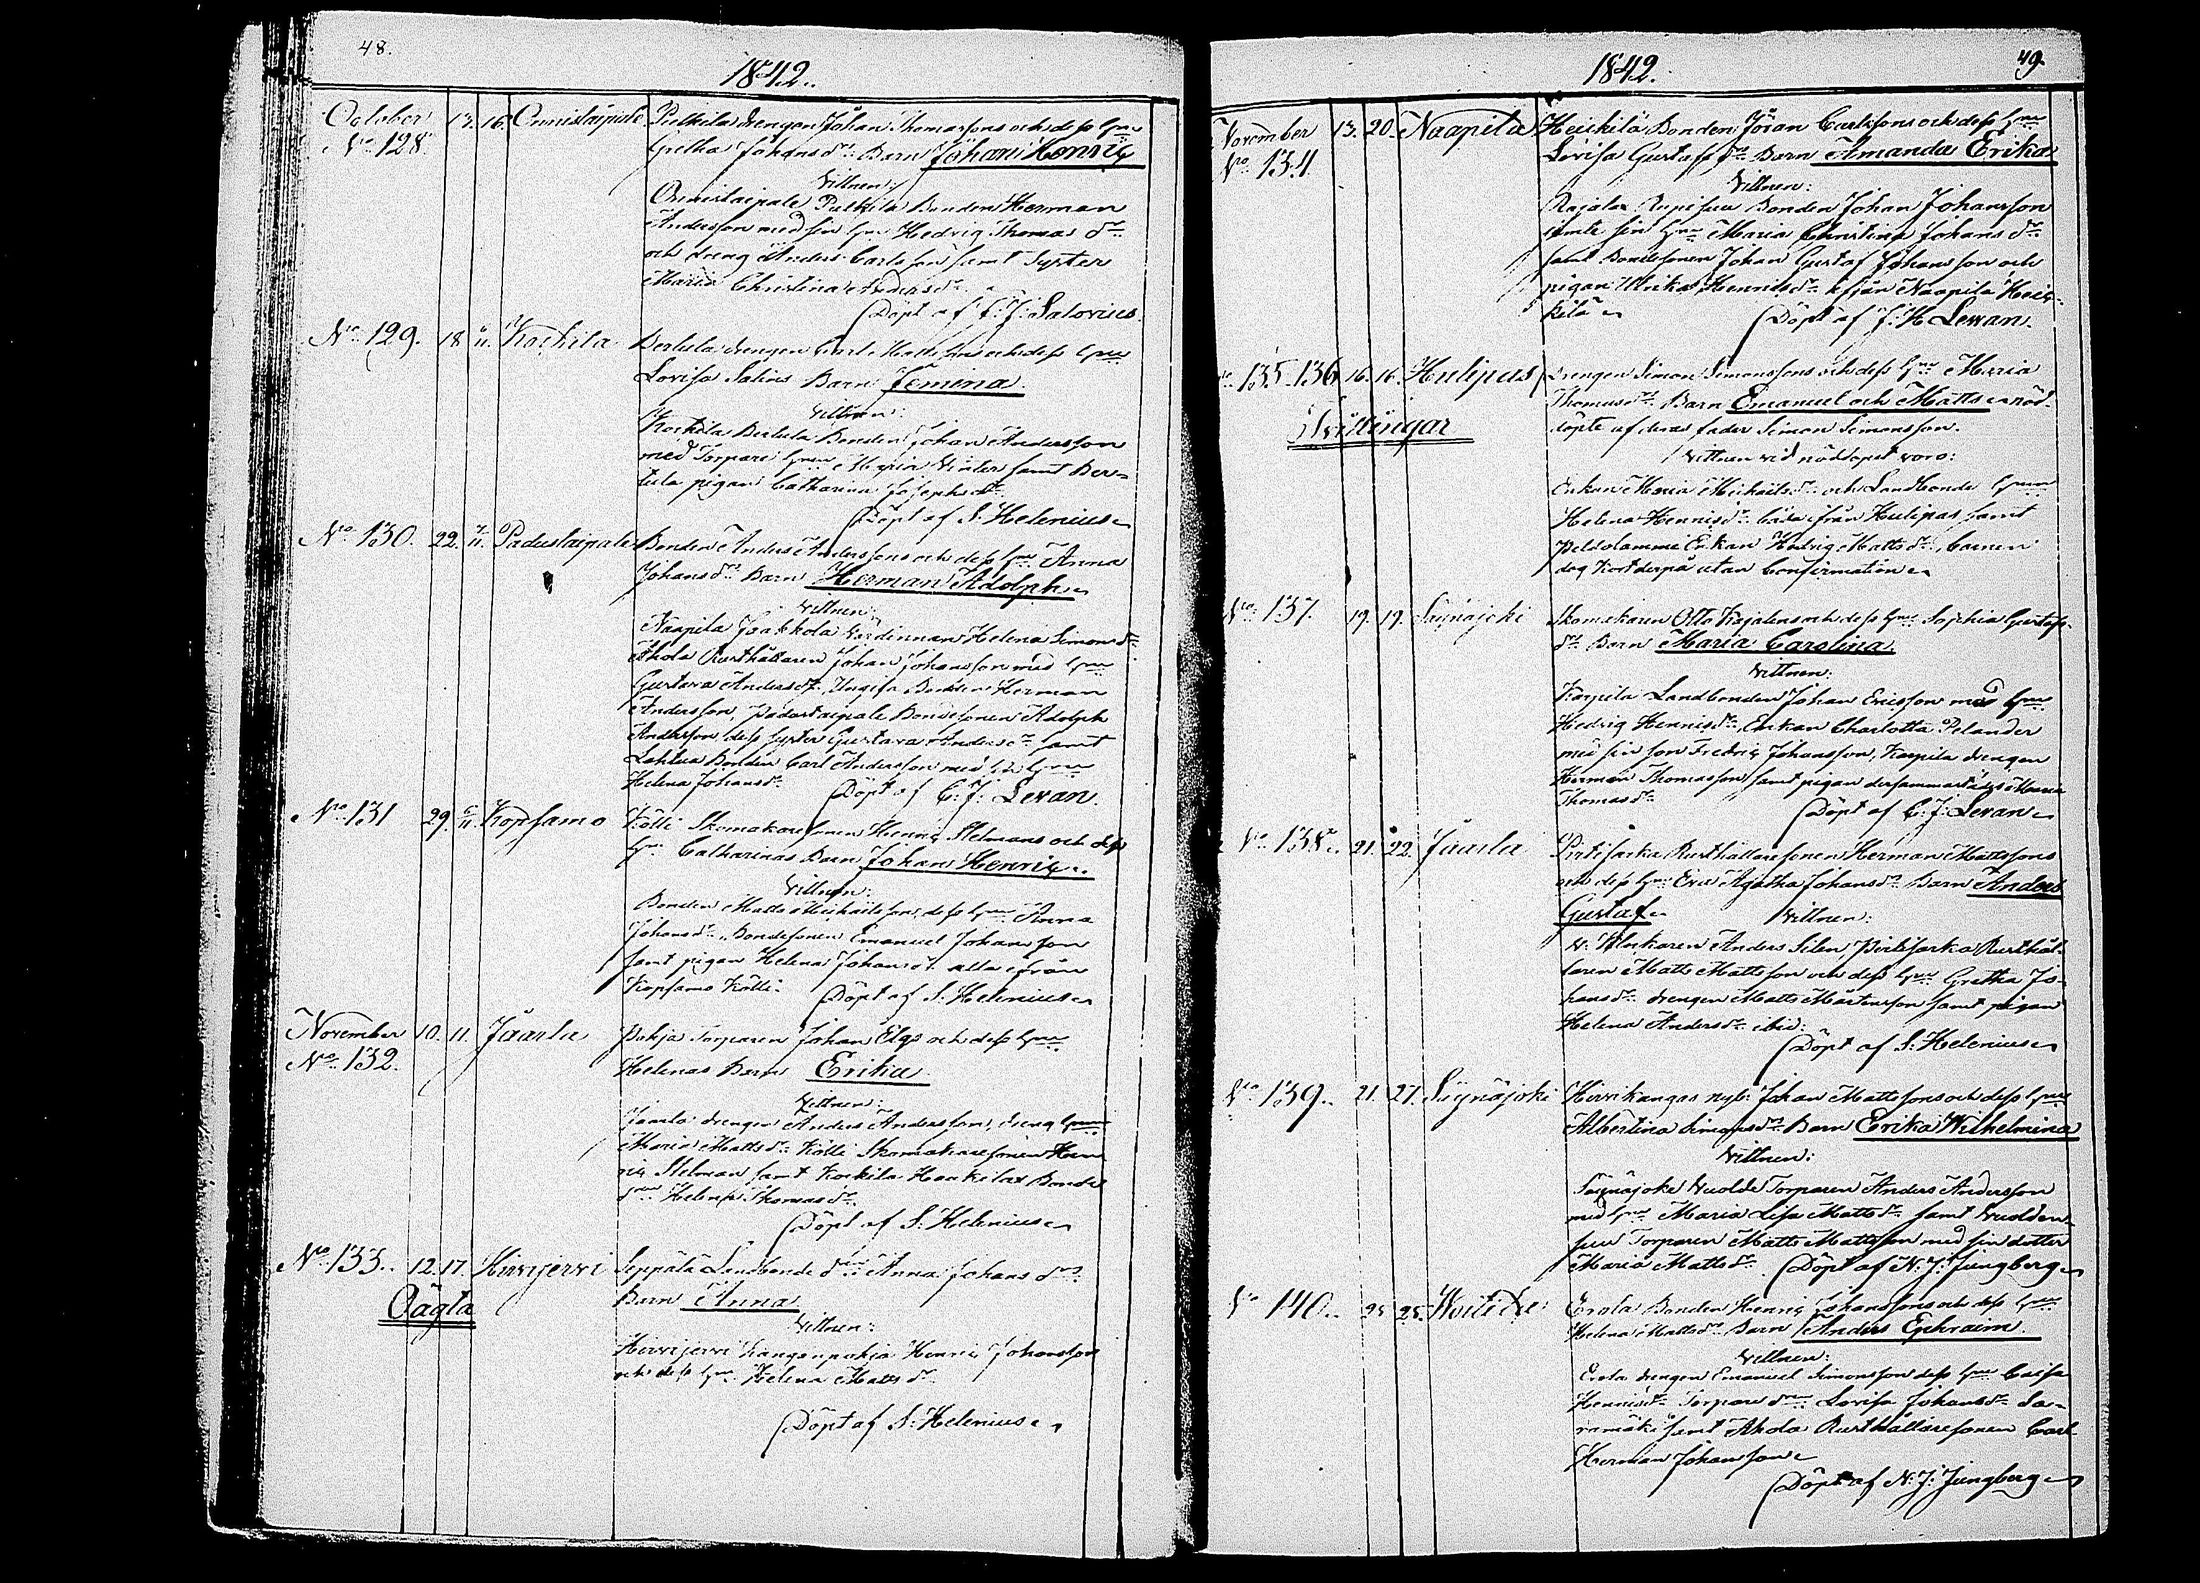 48.
1842.
October 13. 16. Onnistaipale Pietkila drengen Johan Thomassons och dess Hu
No 128. Gretha Johansdr Barn Johan Henric
Vittnen:
Onnistaipale Bonden Herman
Andersson med sin Hu Hedvig Thomasdr
och dreng Anders Carlsson samt Syster
Maria Christina Andersdr
Döpt af F: J: Salovius.
No 129. 18 Koskila Bertula drengen Carl Mattssons och dess Hu
Lovisa Salins Barn Femina.
Vittnen:
Koskila Bertula Bonden Johan Andersson
med Torpare Hu Maria Winter samt Ber-
tula pigan Catharina Josephsdr
Döpt af S. Helenius
No 130. 22. Padustaipale Bonden Anders Anderssons och dess Hu Anna
Johansdr Barn Herman Adolph
Vittnen:
Naapila Jaakkola Värdinnan Helena Simonsdr
Ahola Rusthållaren Johan Johansson med Hu
Gustava Andersdr, Bonden Herman
Andersson, Padustaipale Bondesonen Adolph
Andersson, dess syster Gustava Andersdr samt
Bonden Carl Andersson med sin Hu
Helena Johansdr
Döpt af C: J: Levan.
No 131 29. Kopsamo Kölli Skomakaresonen Henric Stelmans och dess
Hu Catharinas Barn Johan Henric
Vittnen:
Bonden Matts Michailsson, dess Hu Anna
Johansdr, Bondesonen Emanuel Johansson
samt pigan Helena Johansdr alla ifrån
Kopsamo Kölli.
Döpt af S. Helenius
November 10. 11. Jäärla Pohja Torparen Johan Elgs och dess Hu
No 132. Helenas Barn Erika
Vittnen:
drengen Anders Andersson, dreng Hu
Maria Mattsdr Kölli Skomakaresonen Hen-
ric Stelman samt Koskila Bonde
Hu Helena Thomasdr
Döpt af S. Helenius
No 133. 12. 17. Hirvijervi Seppälä Landbonde dr Anna Johansdrs
Oägta Barn Anna
Vittnen:
Hirvijervi Kangenpohja Henric Johansson
och dess Hu Helena Mattsdr
Döpt af S: Helenius
1842. 49.
November 13. 20. Naapila Heickilä Bonden Jöran Carlssons och dess Hu
No 134 Lovisa Gustafsdr Barn Amanda Erika
Vittnen:
Rajalax Bonden Johan Johansson
jemte sin Hu Maria Christina Johansdr
samt Bondesonen Johan Gustaf Johansson och
pigan Ulrika Henricsdr ifrån Naapila Heic-
kilä
Döpt af J. H. Levan.
No 135-136 16. 16. Hulipas Drengen Simon Simonssons och dess Hu Maria
Tvillingar Thomasdr Barn Emanuel och Matts nöd-
döpte af deras fader Simon Simonsson.
Vittnen vid nöddopet voro:
Enkan Maria Michailsdr och Landbonde Hu
Helena Henricsdr båda ifrån Hulipas samt
Peldolammi Enkan Hedvig Mattsdr, barnen
dog kort derpå utan Confirmation
No 137. 19. 19. Siynäjoki Skomakaren Otto Rajalens och dess Hu Sophia Gustafs-
dr Barn Maria Carolina.
Vittnen:
Karpila Landbonden Johan Ericsson med Hu
Hedvig Henricsdr, Enkan Charlotta Pelander
med sin son Fredric Johansson, Karpila drengen
Herman Thomasson samt pigan dersammastädes Maria
Thomasdr
Döpt af C: J: Levan
No 138. 21. 22. Jäärla Pirtijärka Rusthållaresonen Herman Mattssons
och dess Hu Eva Agatha Johansdr Barn Anders
Gustaf
Vittnen:
Klockaren Anders Silen, Pirtijarka Rusthål-
laren Matts Mattsson och dess Hu Gretha Jo-
hansdr drengen Matts Mårtensson samt pigan
Helena Andersdr ibid:
Döpt af S: Helenius
No 139. 21. 27. Siynäjoki Hirvikangas nyb: Johan Mattssons och dess Hu
Albertina Simonsdr Barn Erika Wilhelmina
Vittnen:
Siynäjoki Torparen Anders Andersson
med Hu Maria Lisa Mattsdr samt
Torparen Matts Mattsson med sin dotter
Maria Mattsdr
Döpt af N. J: Jungberg
No 140. 25 25. Woitila Erola Bonden Henric Johanssons och dess Hu
Helena Mattsdr Barn Anders Ephraim.
Vittnen:
Erola drengen Emanuel Simonsson dess Hu Caisa
Henricsdr Torpare dr Lovisa Johansdr Sa-
ramäki samt Ahola Rusthållaresonen Carl
Herman Johansson
Döpt af N. J: Jungberg